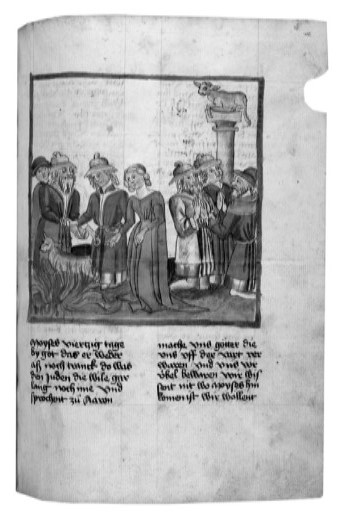 moyses viertzig tage
by got das er weder
aß noch tranck do was
den juden die wile gar
lang noch ime vnd
sprochent zü Aaron
mache vns götter die
vns vff der vart ver
waren vnd vns vor
übel bewaren wir wis
sent nit wo moyses hin
komen ist wir wollent